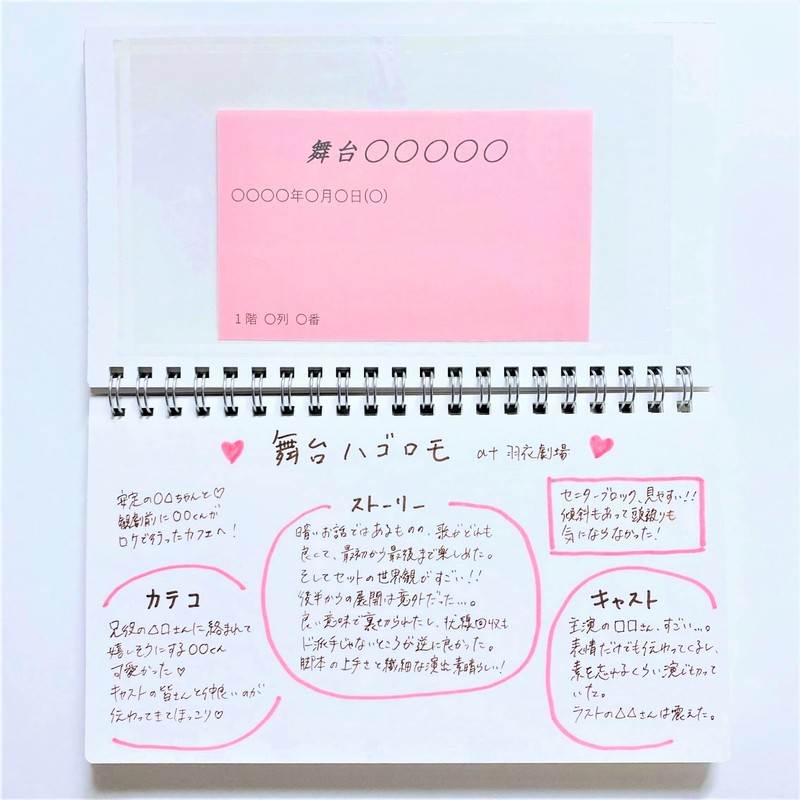 舞台〇〇〇〇〇
〇〇〇〇年〇月〇日(〇)
1階 〇列 〇番
舞台ハゴロモ at 羽衣劇場
安定の〇△ちゃんと♡
観劇前に〇〇くんが
ロケで行ったカフェへ!
カテコ
兄役の△□さんに絡まれて
嬉しそうにする〇〇くん
可愛かった♡
キャストの皆さんと仲良いのが
伝わってきてほっこり♡
ストーリー
暗いお話ではあるものの、歌がどれも
良くて、最初から最後まで楽しめた。
そしてセットの世界観がすごい!!
後半からの展開は意外だった…。
良い意味で裏切られたし、伏線回収も
ド派手じゃないところが逆に良かった。
脚本の上手さと繊細な演出素晴らしい!
センターブロック、見やすい!!
傾斜もあって頭被りも
気にならなかった!
キャスト
主演の□□さん、すごい…。
表情だけでも伝わってくるし、
素を忘れるくらい演じ切って
いた。
ラストの△△さんは震えた。